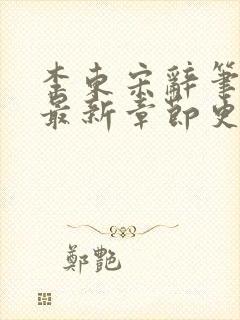 李東宋辭筆
最新章節史
鄭艷